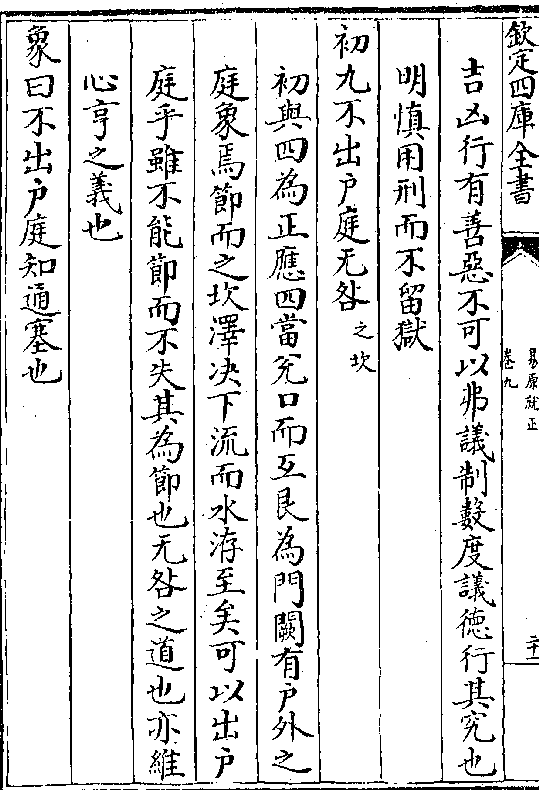 欽定四庫全書
易原就正
卷九
二十一
吉凶行有善惡不可以弗議制數度議徳行其究也
明慎用刑而不留獄
初九不出戶庭无咎之坎
初與四為正應四當兊口而互艮為門闕有戶外之
庭象焉節而之坎澤決下流而水洊至矣可以出戶
庭乎雖不能節而不失其為節也无咎之道也亦維
心亨之義也
象曰不出戶庭知通塞也